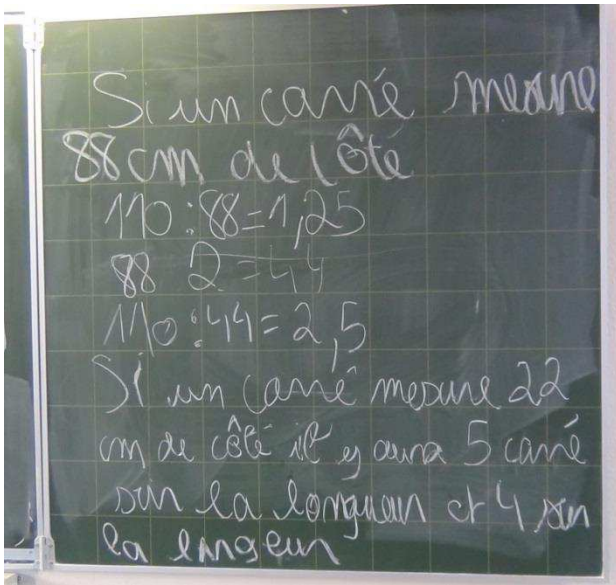 Si un carré mesure
88 cm de côté
110 : 88 = 1,25
88 2 = 44
110 : 44 = 2,5
Si un carré mesure 22
cm de côté il y aura 5 carré
sur la longueur et 4 sur
la largeur